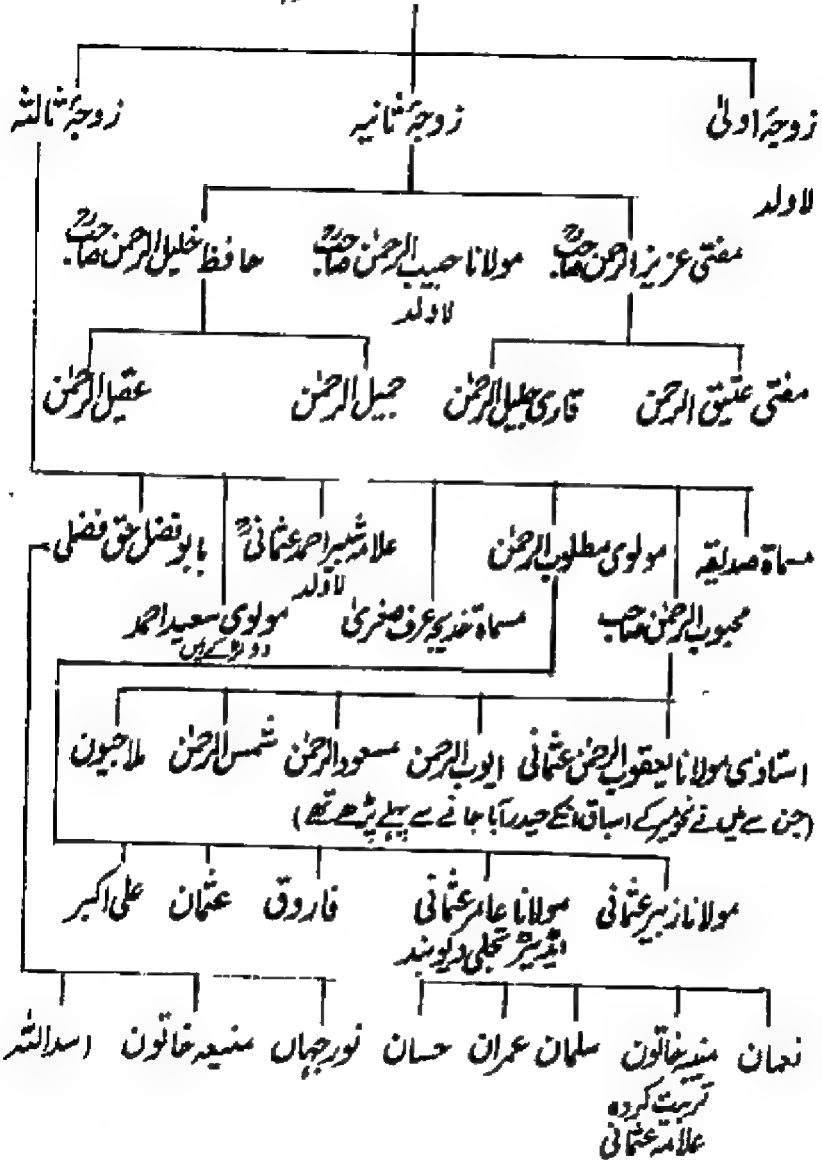 زوجۂ اولیٰ زوجۂ ثانیہ زوجۂ ثالثہ
لاولد
مفتی عزیز الرحمن صاحبؒ مولانا حبیب الرحمٰن صاحبؒ حافظ خلیل الرحمن صاحبؒ
لاولد
مفتی عتیق الرحمن قاری جلیل الرحمٰن جمیل الرحمٰن عقیل الرحمٰن
مسماۃ صدیقہ مولوی مطلوب الرحمٰن علامہ شبیر احمد عثمانیؒ بابو فضل حق فضلی
لاولد
محبوب الرحمٰن صاحب مسماۃ خدیجہ عرف صغریٰ مولوی سعید احمد
دو لڑکے ہیں
استاذی مولانا یعقوب الرحمٰن عثمانی ایوب الرحمٰن مسعود الرحمٰن شمس الرحمٰن ملا جیون
(جن سے میں نے نحومیر کے اسباق انکے حیدرآباد جانے سے پہلے پڑھے تھے)
مولانا زبیر عثمانی مولانا عامر عثمانی فاروق عثمان علی اکبر
ایڈیٹر تجلی دیوبند
نعمان منیبہ خاتون سلمان عمران حسان نور جہاں منیعہ خاتون اسد اللہ
تربیت کردہ
علامہ عثمانی